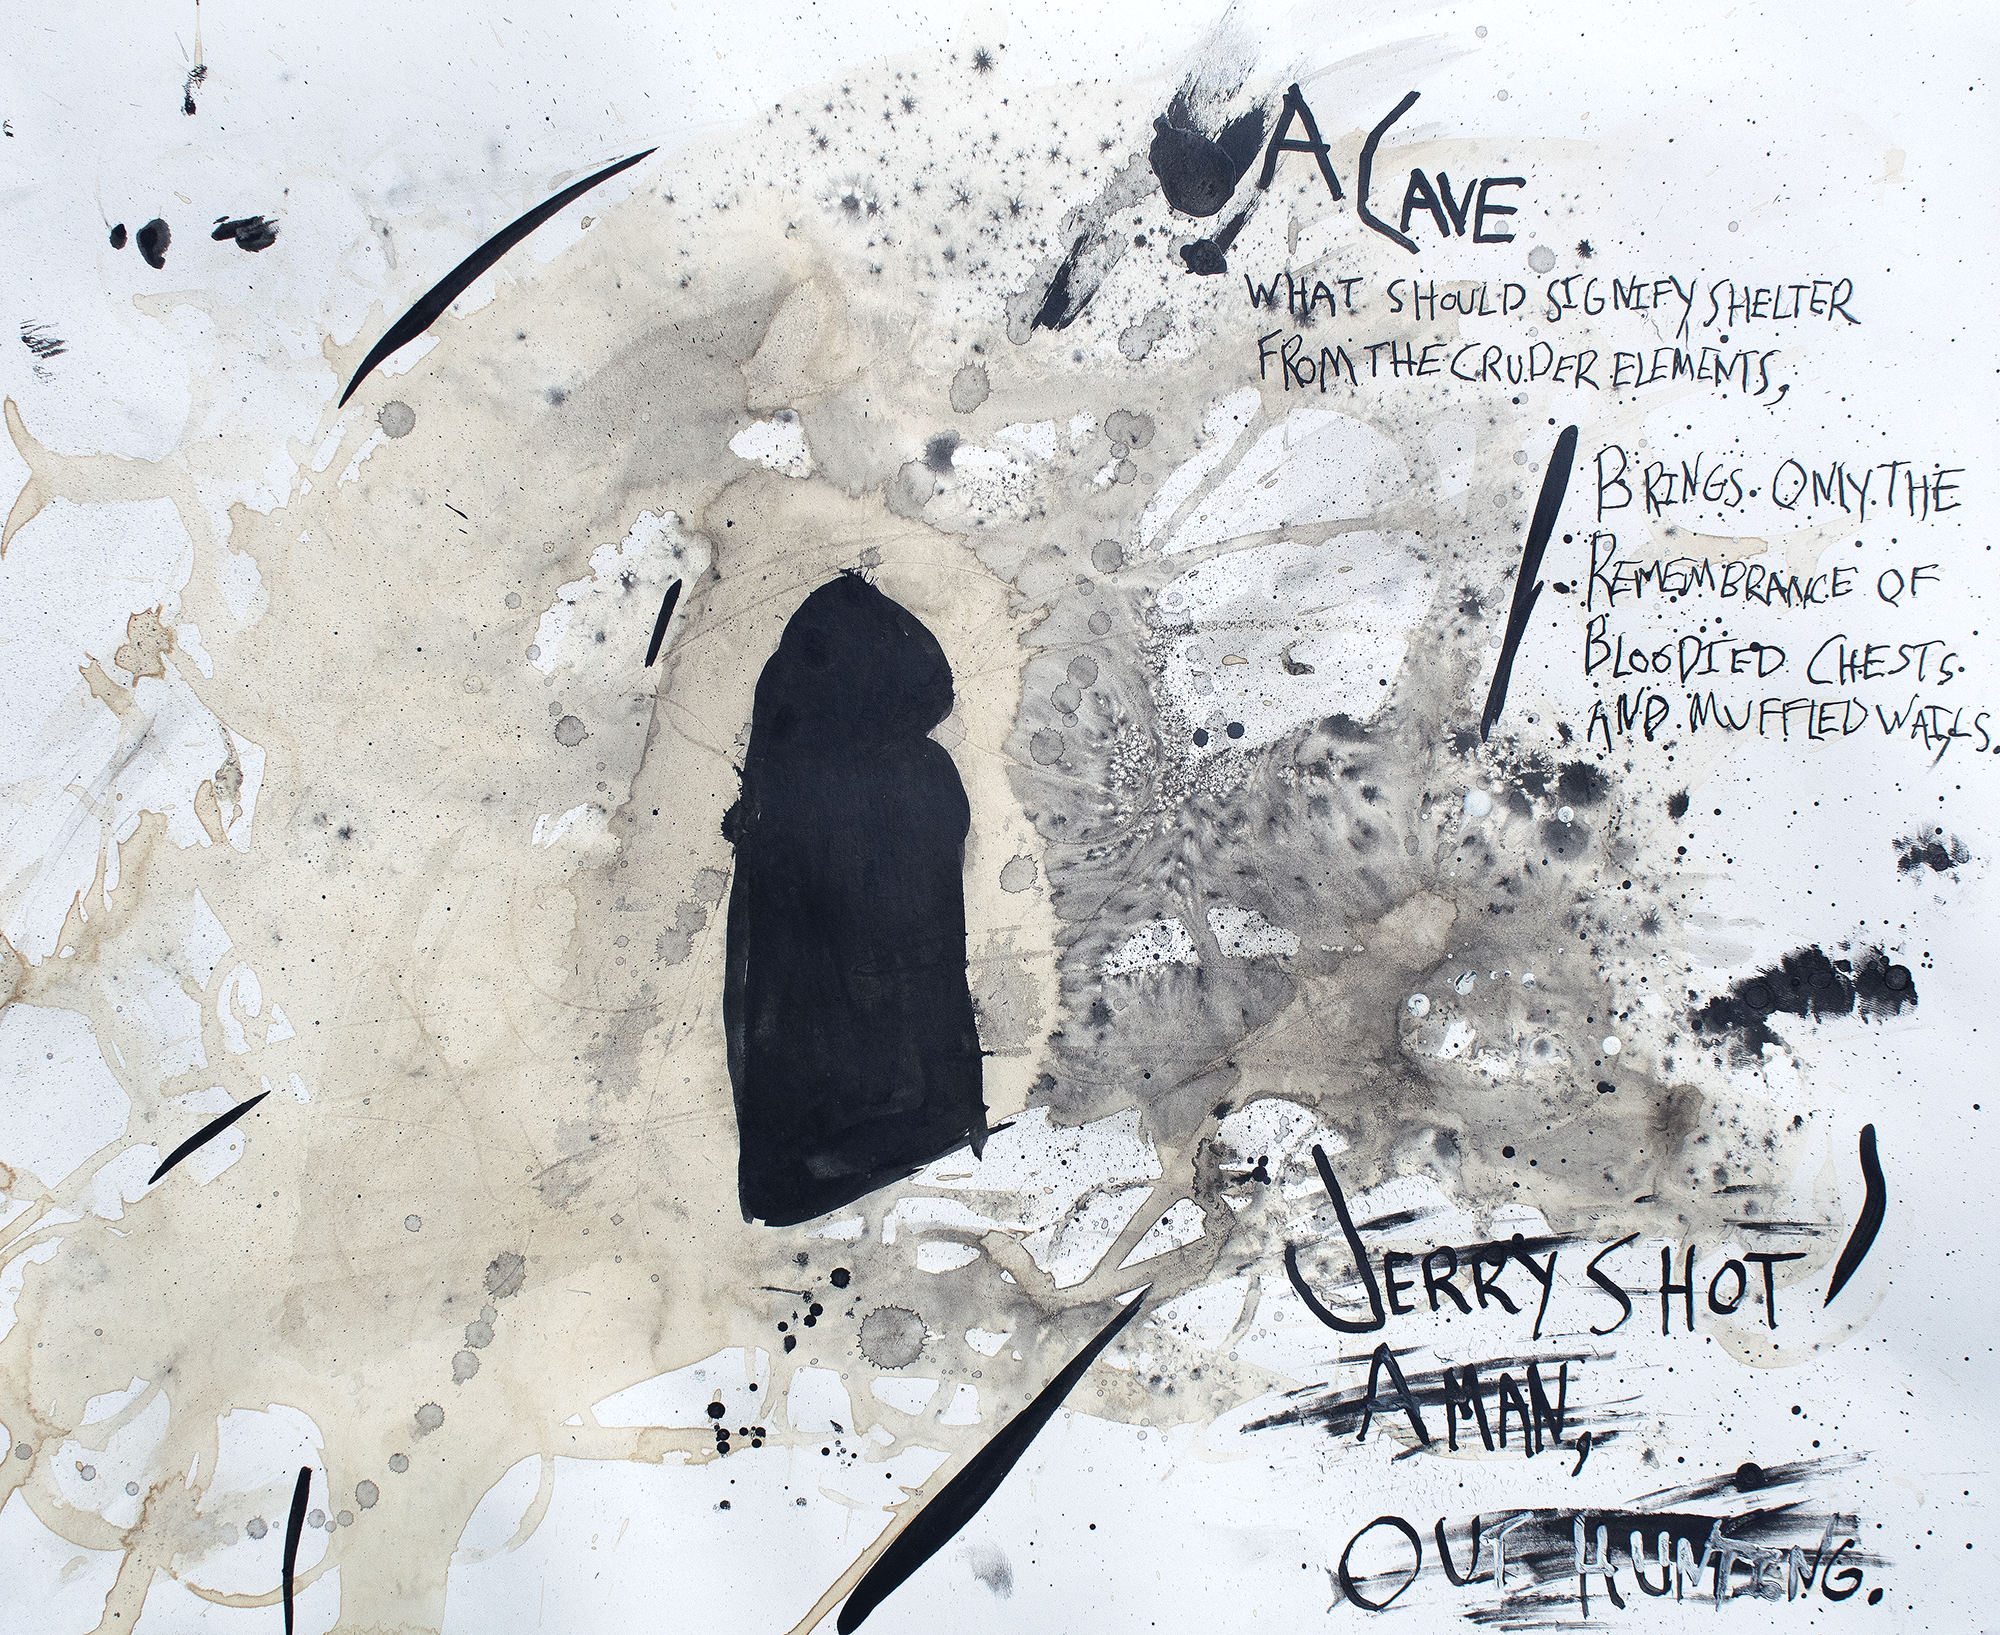 A CAVE
WHAT SHOULD SIGNIFY SHELTER
FROM THE CRUDER ELEMENTS,
BRINGS ONLY THE
REMEMBRANCE OF
BLOODIED CHESTS
AND MUFFLED WAILS.
JERRY SHOT
A MAN,
OUT HUNTING.